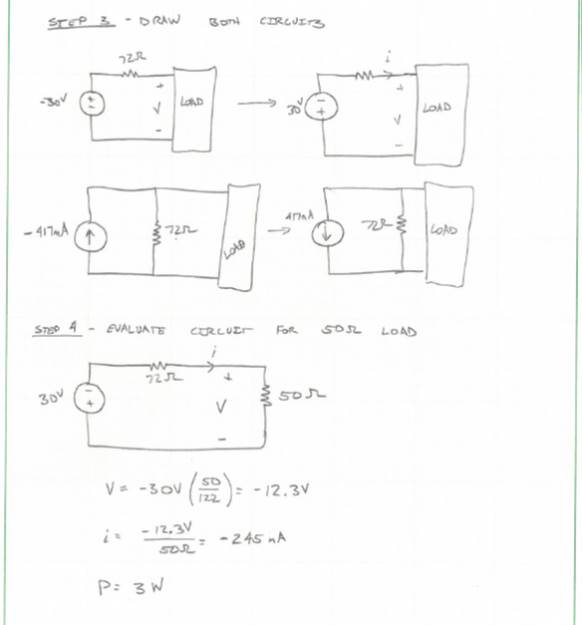 STEP 3 - DRAW BOTH CIRCUITS
72Ω
i
-30V
+
V
-
LOAD
30V
+
V
-
LOAD
-417mA
72Ω
LOAD
417mA
72Ω
LOAD
STEP 4 - EVALUATE CIRCUIT FOR 50Ω LOAD
i
72Ω
30V
+
V
-
50Ω
V = -30V (50/122) = -12.3V
i = -12.3V/50Ω = -245 mA
P = 3 W